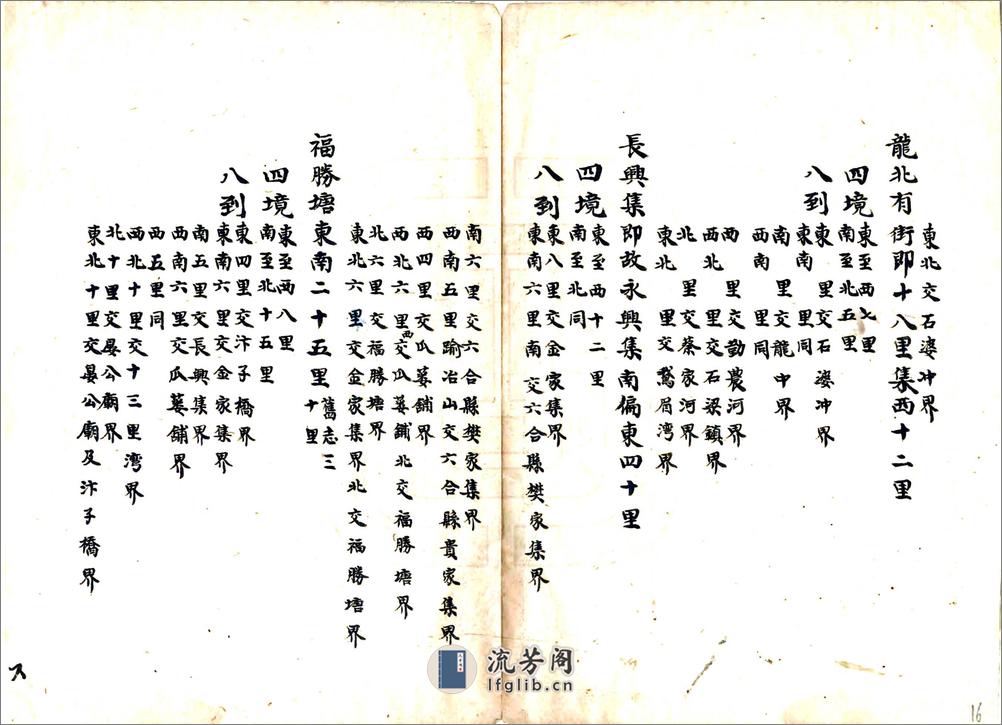 東北交石婆冲界
龍北有街即十八里集西十二里
四境東至西七里
南至北五里
八到東 里交石婆冲界
東南 里同
南 里交龍中界
西南 里同
西 里交勸農河界
西北 里交石梁鎮界
北 里交蔡家河界
東北 里交鵝眉湾界
長興集即故永興集南偏東四十里
四境東至西十二里
南至北同
八到東八里交金家集界
東南六里南交六合縣樊家集界
南六里交六合縣樊家集界
西南五里踰冶山交六合縣貴家集界
西四里交瓜蔞舖界
西北六里西交瓜蔞舖北交福勝塘界
北六里交福勝塘界
東北六里交金家集界北交福勝塘界
福勝塘東南二十五里舊志三十里
四境東至西八里
南至北十五里
八到東四里交汴子橋界
東南六里交金家集界
南五里交長興集界
西南六里交瓜蔞舖界
西五里同
西北十里交十三里湾界
北十里交晏公廟界
東北十里交晏公廟及汴子橋界
流芳阁
lfglib.cn
16